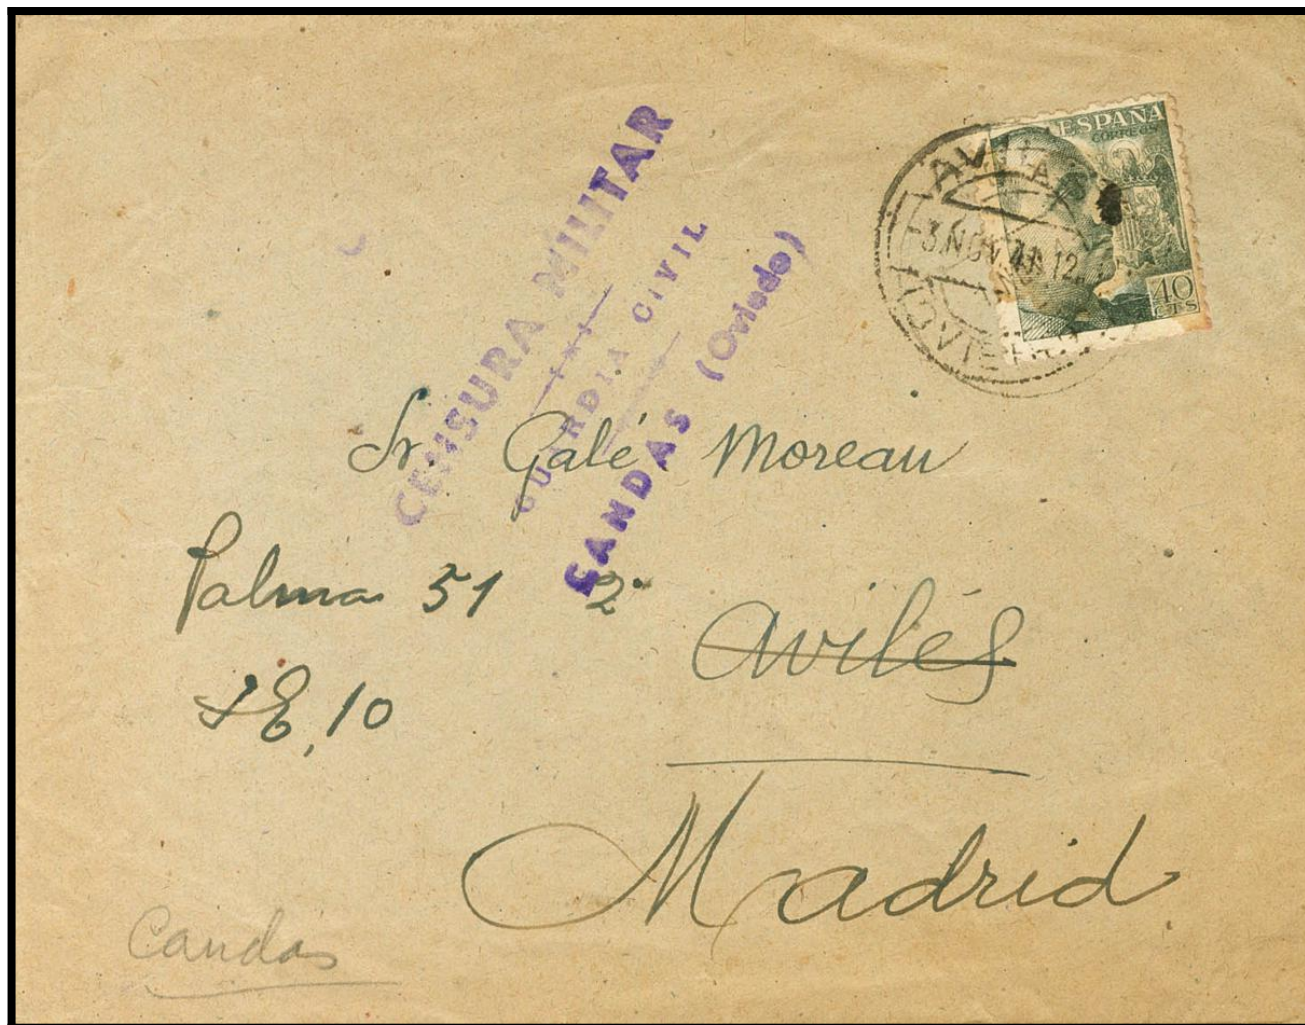 ESPAÑA
CORREOS
40
CTS
AVILES
-3.NOV 41.12
CENSURA MILITAR
GUARDIA CIVIL
CANDAS (Oviedo)
Sr. Galé Moreau
Palma 51 2º
Avilés
10
Madrid
Candas